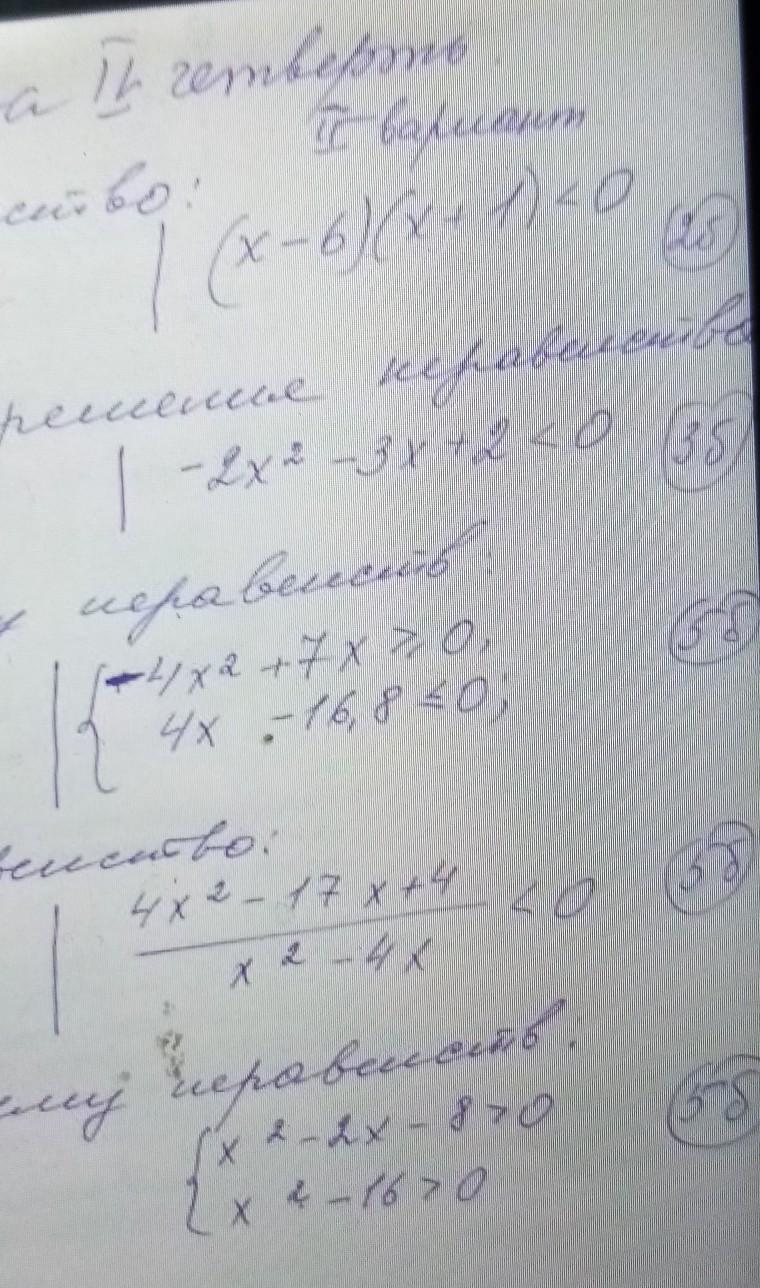 а II четверть
II вариант
ство:
(x-6)(x+1)<0
2б
решение неравенства
-2x² -3x+2<0
3б
неравенств:
{-4x² +7x ≥ 0,
5б
4x -16,8 ≤ 0;
венство:
4x² - 17x+4
< 0
5б
x² -4x
ему неравенств:
{x² -2x -8>0
5б
x² -16>0